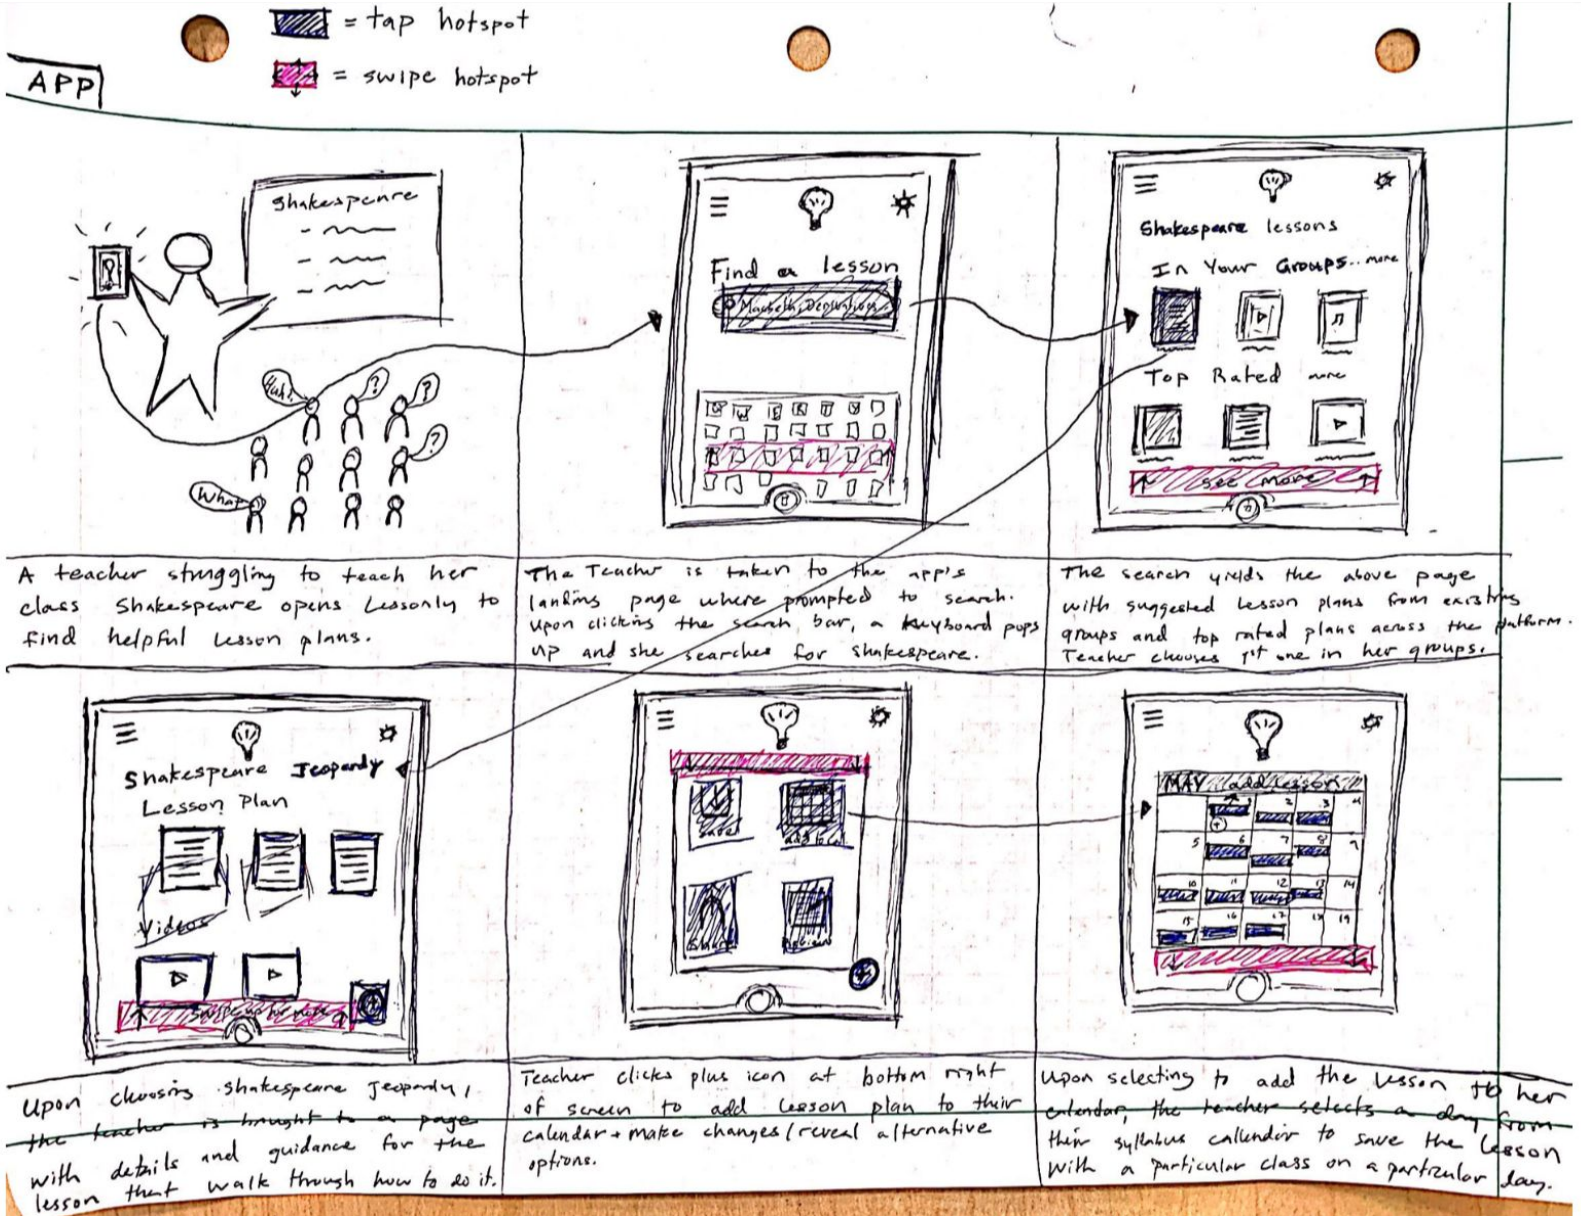 = tap hotspot
= swipe hotspot
APP
Shakespeare
Huh?
?
?
?
What
Find a lesson
Macbeth, Derivatives
Shakespeare lessons
In Your Groups.. more
Top Rated more
see more
A teacher struggling to teach her
class Shakespeare opens Lessonly to
find helpful lesson plans.
The Teacher is taken to the app's
landing page where prompted to search.
Upon clicking the search bar, a keyboard pops
up and she searches for Shakespeare.
The search yields the above page
with suggested lesson plans from existing
groups and top rated plans across the platform.
Teacher chooses 1st one in her groups.
Shakespeare Jeopardy
Lesson Plan
Videos
Swipe up for more
Save
add to cal
Share
Review
MAY add lesson
1 2 3 4
5 6 7 8 9
10 11 12 13 14
15 16 17 18 19
Upon choosing Shakespeare Jeopardy,
the teacher is brought to a page
with details and guidance for the
lesson that walk through how to do it.
Teacher clicks plus icon at bottom right
of screen to add lesson plan to their
calendar + make changes/reveal alternative
options.
Upon selecting to add the lesson to her
calendar, the teacher selects a day from
their syllabus callendar to save the lesson
with a particular class on a particular day.